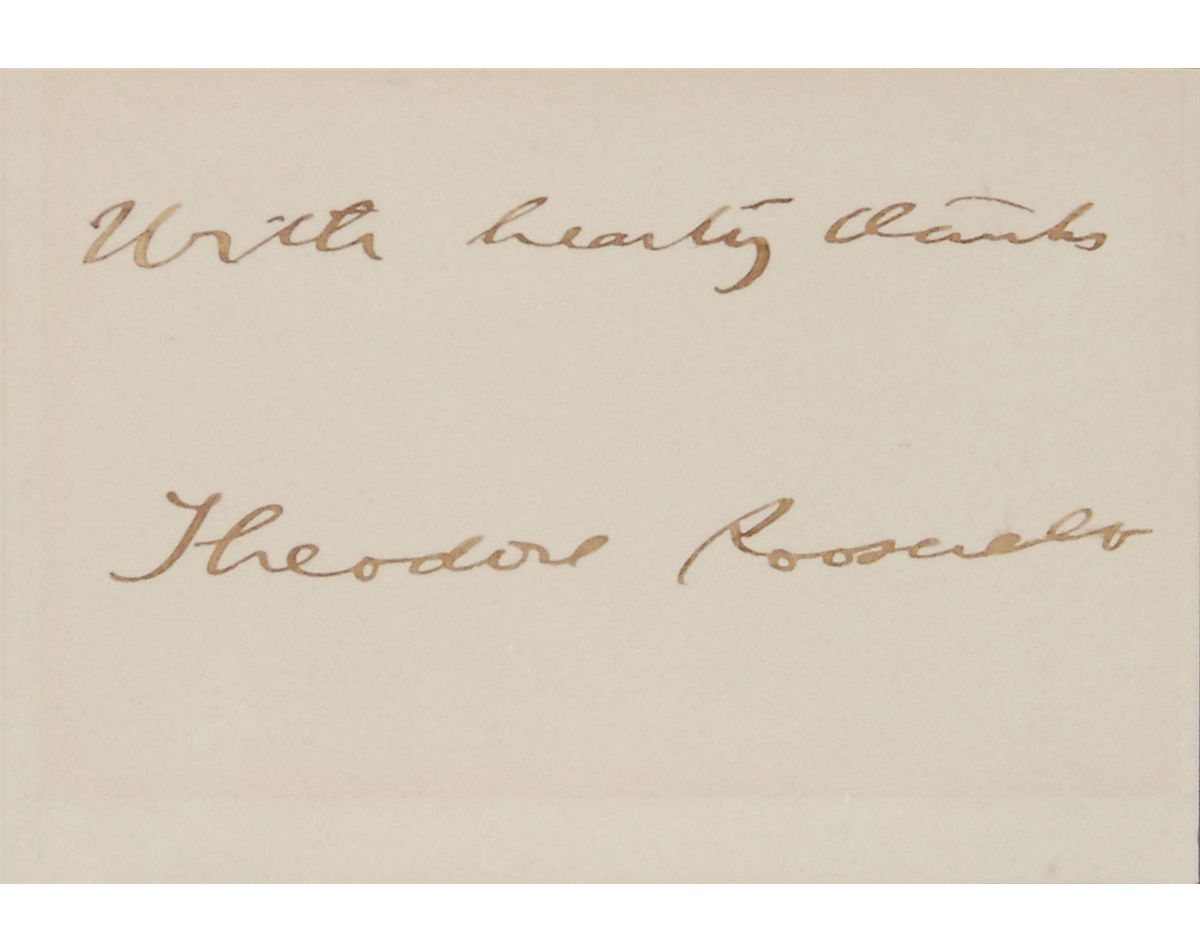 With hearty thanks
Theodore Roosevelt